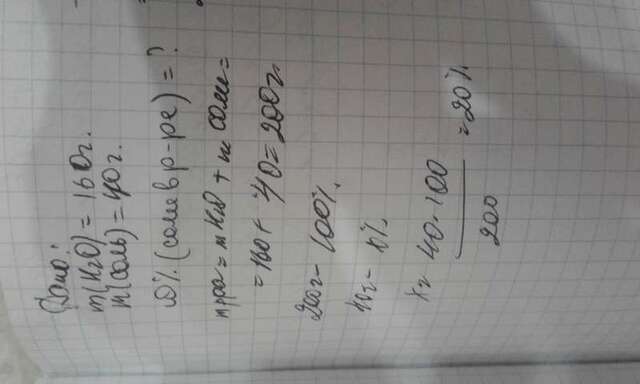 Дано:
m(H2O) = 160г.
m(соль) = 40г.
ω%(соли в р-ре) = ?
m р-ра = m H2O + m соли =
= 160 + 40 = 200г.
200г - 100%
40г - x%
x = 40·100 / 200 = 20%